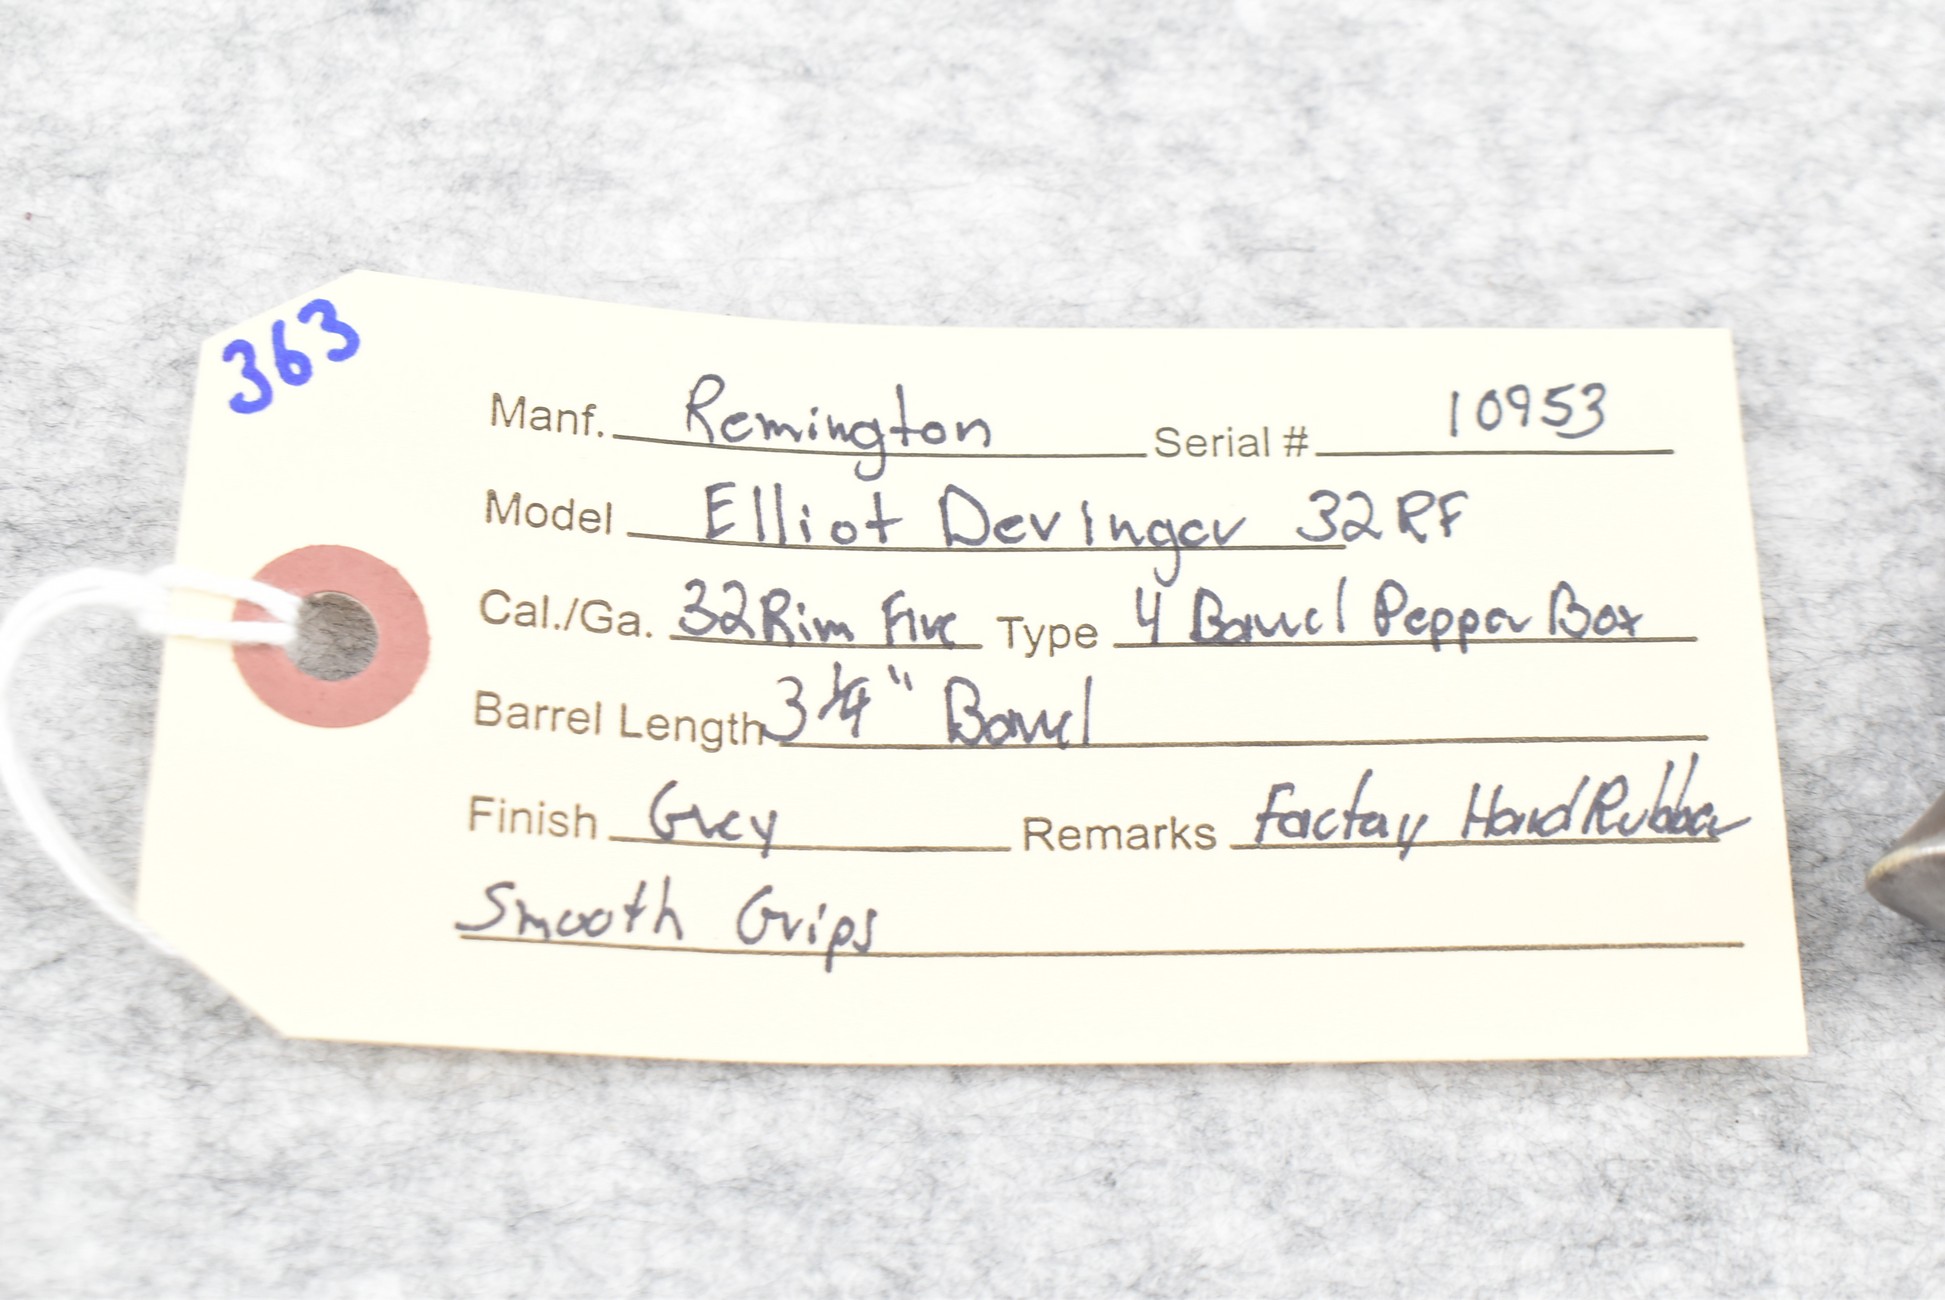 363
Manf. Remington Serial # 10953
Model Elliot Derringer 32 RF
Cal./Ga. 32 Rim Fire Type 4 Barrel Pepper Box
Barrel Length 3 1/4" Barrel
Finish Grey Remarks Factory Hard Rubber
Smooth Grips